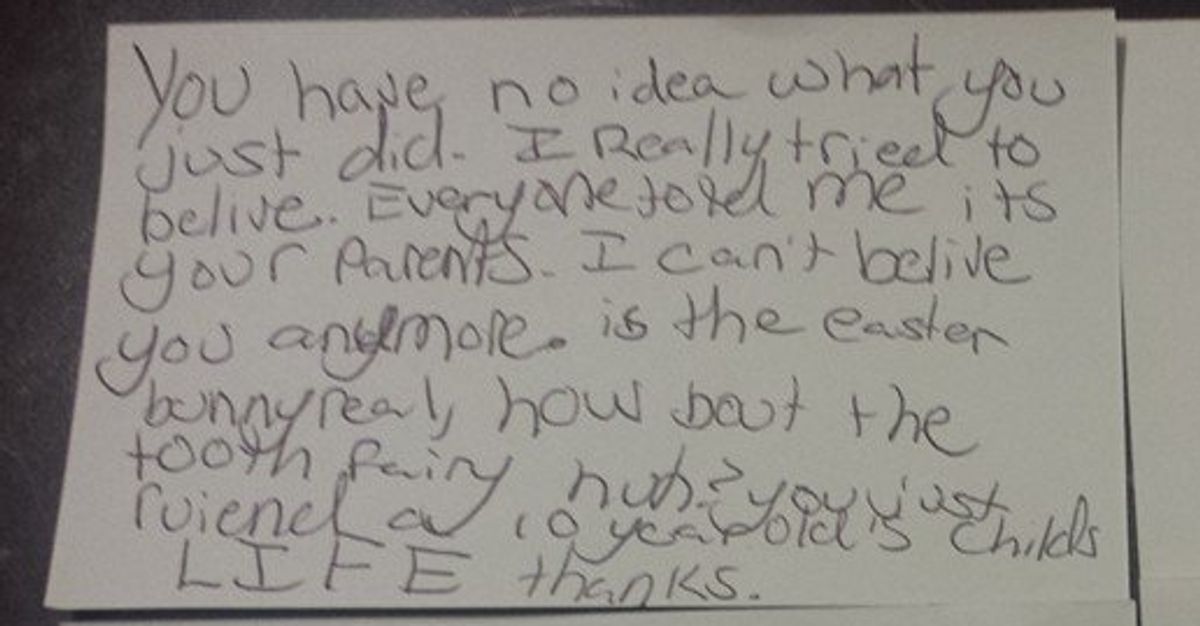 You have no idea what you
just did. I Really tried to
belive. Everyone toled me its
your Parents. I can't belive
you anymore. is the easter
bunny real, how bout the
tooth fairy huh? you just
ruiend a 10 year old's childs
LIFE thanks.